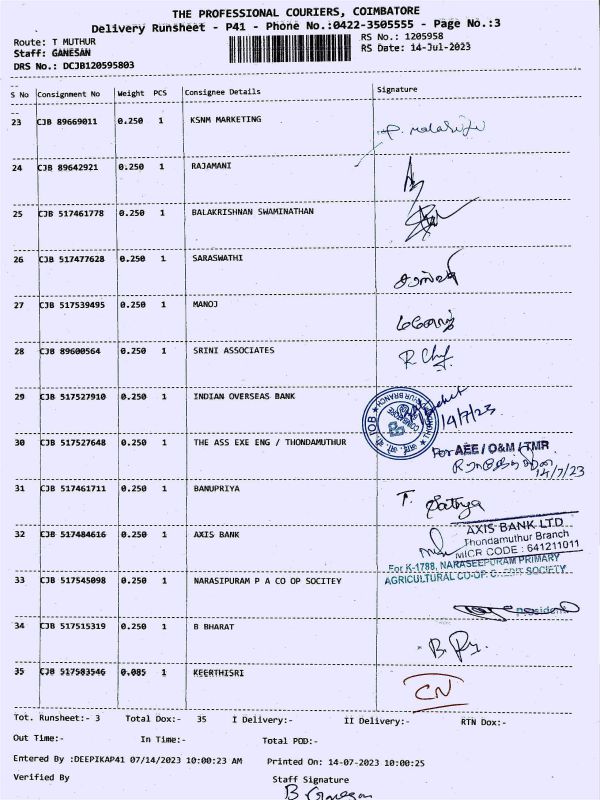 THE PROFESSIONAL COURIERS, COIMBATORE
Delivery Runsheet - P41 - Phone No.:0422-3505555 - Page No.:3
Route: T MUTHUR
RS No.: 1205958
Staff: GANESAN
RS Date: 14-Jul-2023
DRS No.: DCJB120595803
S No Consignment No Weight PCS Consignee Details Signature
23 CJB 89669011 0.250 1 KSNM MARKETING
24 CJB 89642921 0.250 1 RAJAMANI
25 CJB 517461778 0.250 1 BALAKRISHNAN SWAMINATHAN
26 CJB 517477628 0.250 1 SARASWATHI
27 CJB 517539495 0.250 1 MANOJ
28 CJB 89600564 0.250 1 SRINI ASSOCIATES
29 CJB 517527910 0.250 1 INDIAN OVERSEAS BANK
14/7/23
30 CJB 517527648 0.250 1 THE ASS EXE ENG / THONDAMUTHUR
For AEE / O&M / TMR
14/7/23
31 CJB 517461711 0.250 1 BANUPRIYA
T. Sathya
32 CJB 517484616 0.250 1 AXIS BANK
AXIS BANK LTD
Thondamuthur Branch
MICR CODE : 641211011
For K-1788, NARASEEPURAM PRIMARY
AGRICULTURAL CO-OP. CREDIT SOCIETY
33 CJB 517545098 0.250 1 NARASIPURAM P A CO OP SOCITEY
President
34 CJB 517515319 0.250 1 B BHARAT
35 CJB 517583546 0.085 1 KEERTHISRI
CN
Tot. Runsheet:- 3 Total Dox:- 35 I Delivery:- II Delivery:- RTN Dox:-
Out Time:- In Time:- Total POD:-
Entered By :DEEPIKAP41 07/14/2023 10:00:23 AM Printed On: 14-07-2023 10:00:25
Verified By Staff Signature